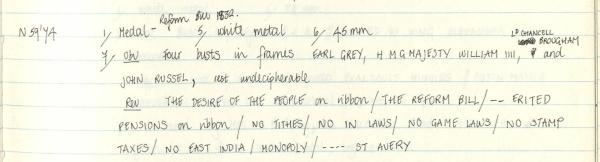 Reform Bill 1832.
N59'44 1/ Medal - 5/ white metal 6/ 45mm
7/ Obv Four busts in frames EARL GREY, H M G MAJESTY WILLIAM IIII, LD CHANCELL BROUGHAM and
JOHN RUSSEL, rest undecipherable
Rev THE DESIRE OF THE PEOPLE on ribbon / THE REFORM BILL / -- ERITED
PENSIONS on ribbon / NO TITHES / NO IN LAWS / NO GAME LAWS / NO STAMP
TAXES / NO EAST INDIA / MONOPOLY / ---- ST AVERY